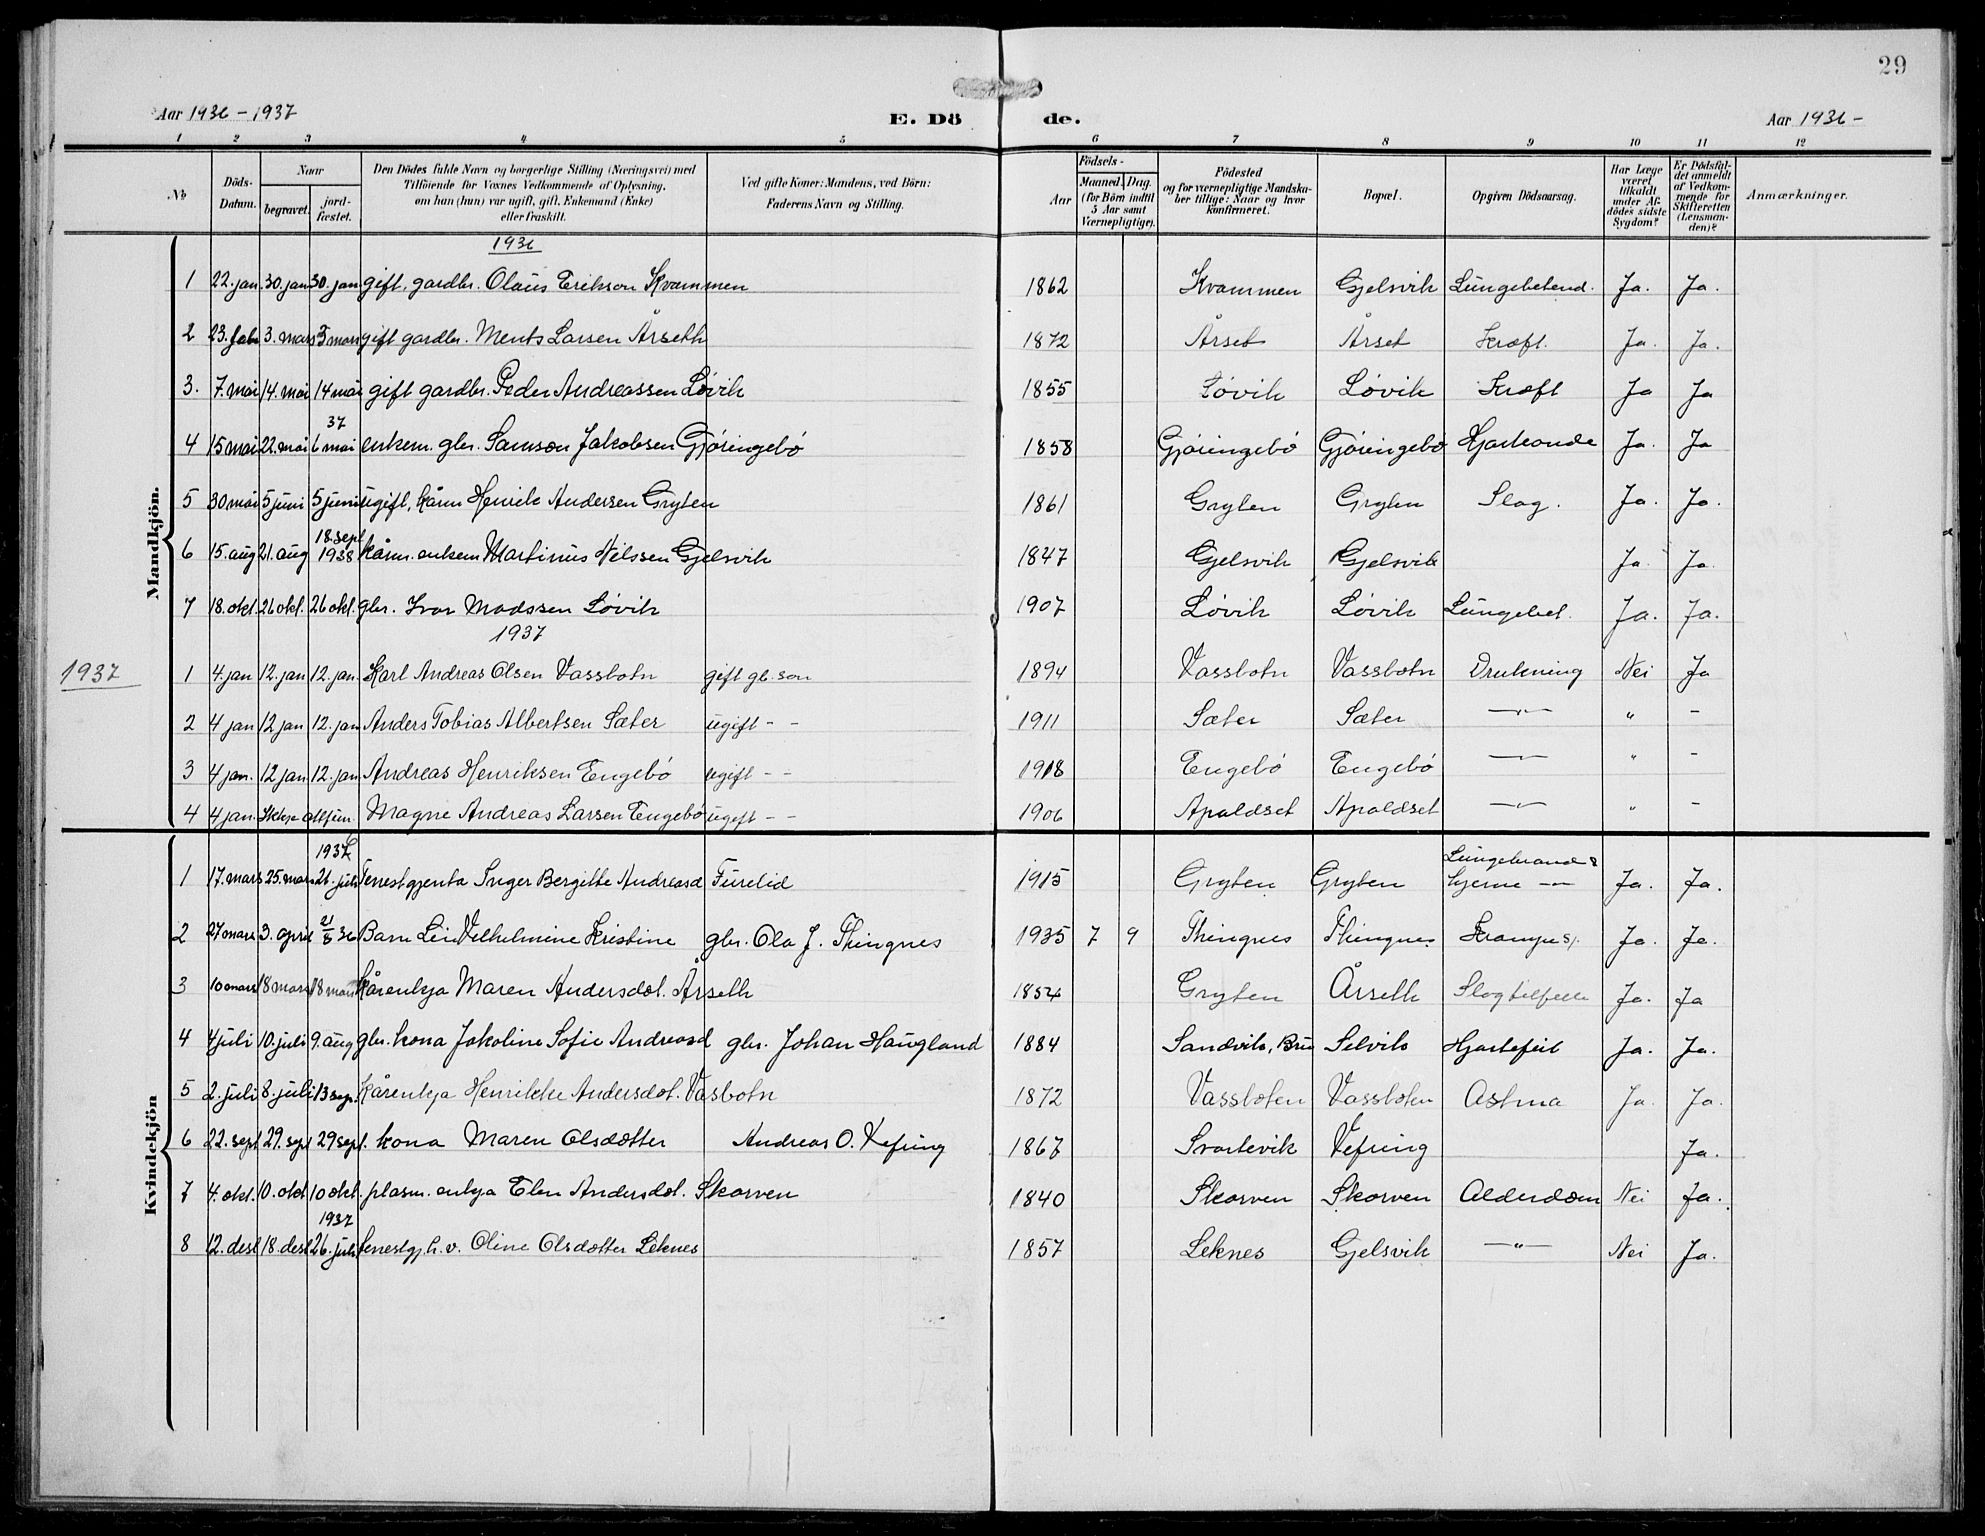 29
Aar 1936 - 1937
E. Dö de.
Aar 1936 -
1 2 3 4 5 6 7 8 9 10 11 12
No.
Döds-Datum.
Naar
begravet.
jord-fæstet.
Den Dödes fulde Navn og borgerlige Stilling (Næringsvei) med
Tilföiende for Voxnes Vedkommende af Oplysning,
om han (hun) var ugift, gift, Enkemand (Enke)
eller fraskilt.
Ved gifte Koner: Mandens, ved Börn:
Faderens Navn og Stilling.
Födsels-
Aar
Maaned. Dag.
(for Börn indtil
5 Aar samt
Værnepligtige).
Födested
og for værnepligtige Mandska-
ber tillige: Naar og hvor
konfirmeret.
Bopæl.
Opgiven Dödsaarsag.
Har Læge
været
tilkaldt
under Af-
dödes sidste
Sygdom?
Er Dödsfal-
det anmeldt
af Vedkom-
mende for
Skifteretten
(Lensman-
den)?
Anmærkninger.
Mandkjön.
1936
1 22. jan. 30. jan 30. jan gift, gardbr. Olaus Erikson Kvammen 1862 Kvammen Gjelsvik Lungebetend. Ja. Ja.
2 23. febr 3. mars 3 mars gift gardbr. Ments Larsen Årseth 1872 Årset Årset Kræft. Ja. Ja.
3. 7. mai 14. mai 14 mai gift gardbr. Peder Andreassen Løvik 1855 Løvik Løvik Kræft Ja Ja
37
4 15 mai 22. mai 6 mai enkem. gbr. Samson Jakobsen Gjöringebö 1858 Gjöringebö Gjöringebö Hjarteonde Ja. Ja
5 30 mai 5 juni 5 juni ugift, kårm Henrik Andersen Gryten 1861 Gryten Gryten Slag. Ja. Ja.
18. sept
6 15. aug 21. aug 1938 kårm. enkem Martinus Nilssen Gjelsvik 1847 Gjelsvik Gjelsvik Ja. Ja.
7 18. okt. 26 okt. 26 okt. gbr. Ivar Madssen Løvik 1907 Løvik Løvik Lungebet. Ja. Ja.
1937
1937
1 4. jan 12. jan 12. jan. Karl Andreas Olsen Vassbotn gift gb. son 1894 Vassbotn Vassbotn Drukning Nei Ja
2 4 jan 12 jan 12. jan Anders Tobias Albertsen Sæter ugift - - 1911 Sæter Sæter —"— " -
3 4 jan. 12 jan 12. jan Andreas Henriksen Engebö ugift - - 1918 Engebö Engebö —"— " -
4 4 jan. Ikkje attfun. Magne Andreas Larsen Engebö ugift - - 1906 Apaldset Apaldset —"— " -
Kvindekjön
1936
1 17. mars 25. mars 21. juli Tenestgjenta Inger Bergitte Andreasd Furelid 1915 Gryten Gryten Lungebrand & hjerne —"— Ja. Ja.
2 27 mars 3. april 21/5 36 Barn Vilhelmine Kristine gbr. Ola J. Thingnes 1935 7 9 Thingnes Thingnes Krampe Ja. Ja.
3 10 mars 18 mars 18 mars Kårenkja Maren Andersdot. Årseth 1854 Gryten Årseth Slagtilfelle Ja. Ja
4 4 juli 10. juli 9. aug gbr. kona Jakoline Sofie Andreasd gbr. Johan Haugland 1884 Sandvik, Bru Selvik Hjartefeil Ja. Ja.
5 2. juli 8. juli 13 sep. Kårenkja Henrikke Andersdot. Vasbotn 1872 Vassboten Vassboten Astma Ja. Ja.
6 22. sept 29. sept 29 sept. kona Maren Olsdotter Andreas O. Vefring 1867 Svartevik Vefring Ja.
7 4. okt. 10. okt 10 okt. plasm. enkja Elen Andersdot. Skorven 1840 Skorven Skorven Alderdom Nei Ja.
1937
8 12. des 18. des 26. juli tenestgj. h. v. Oline Olsdotter Leknes 1857 Leknes Gjelsvik —"— Nei Ja.